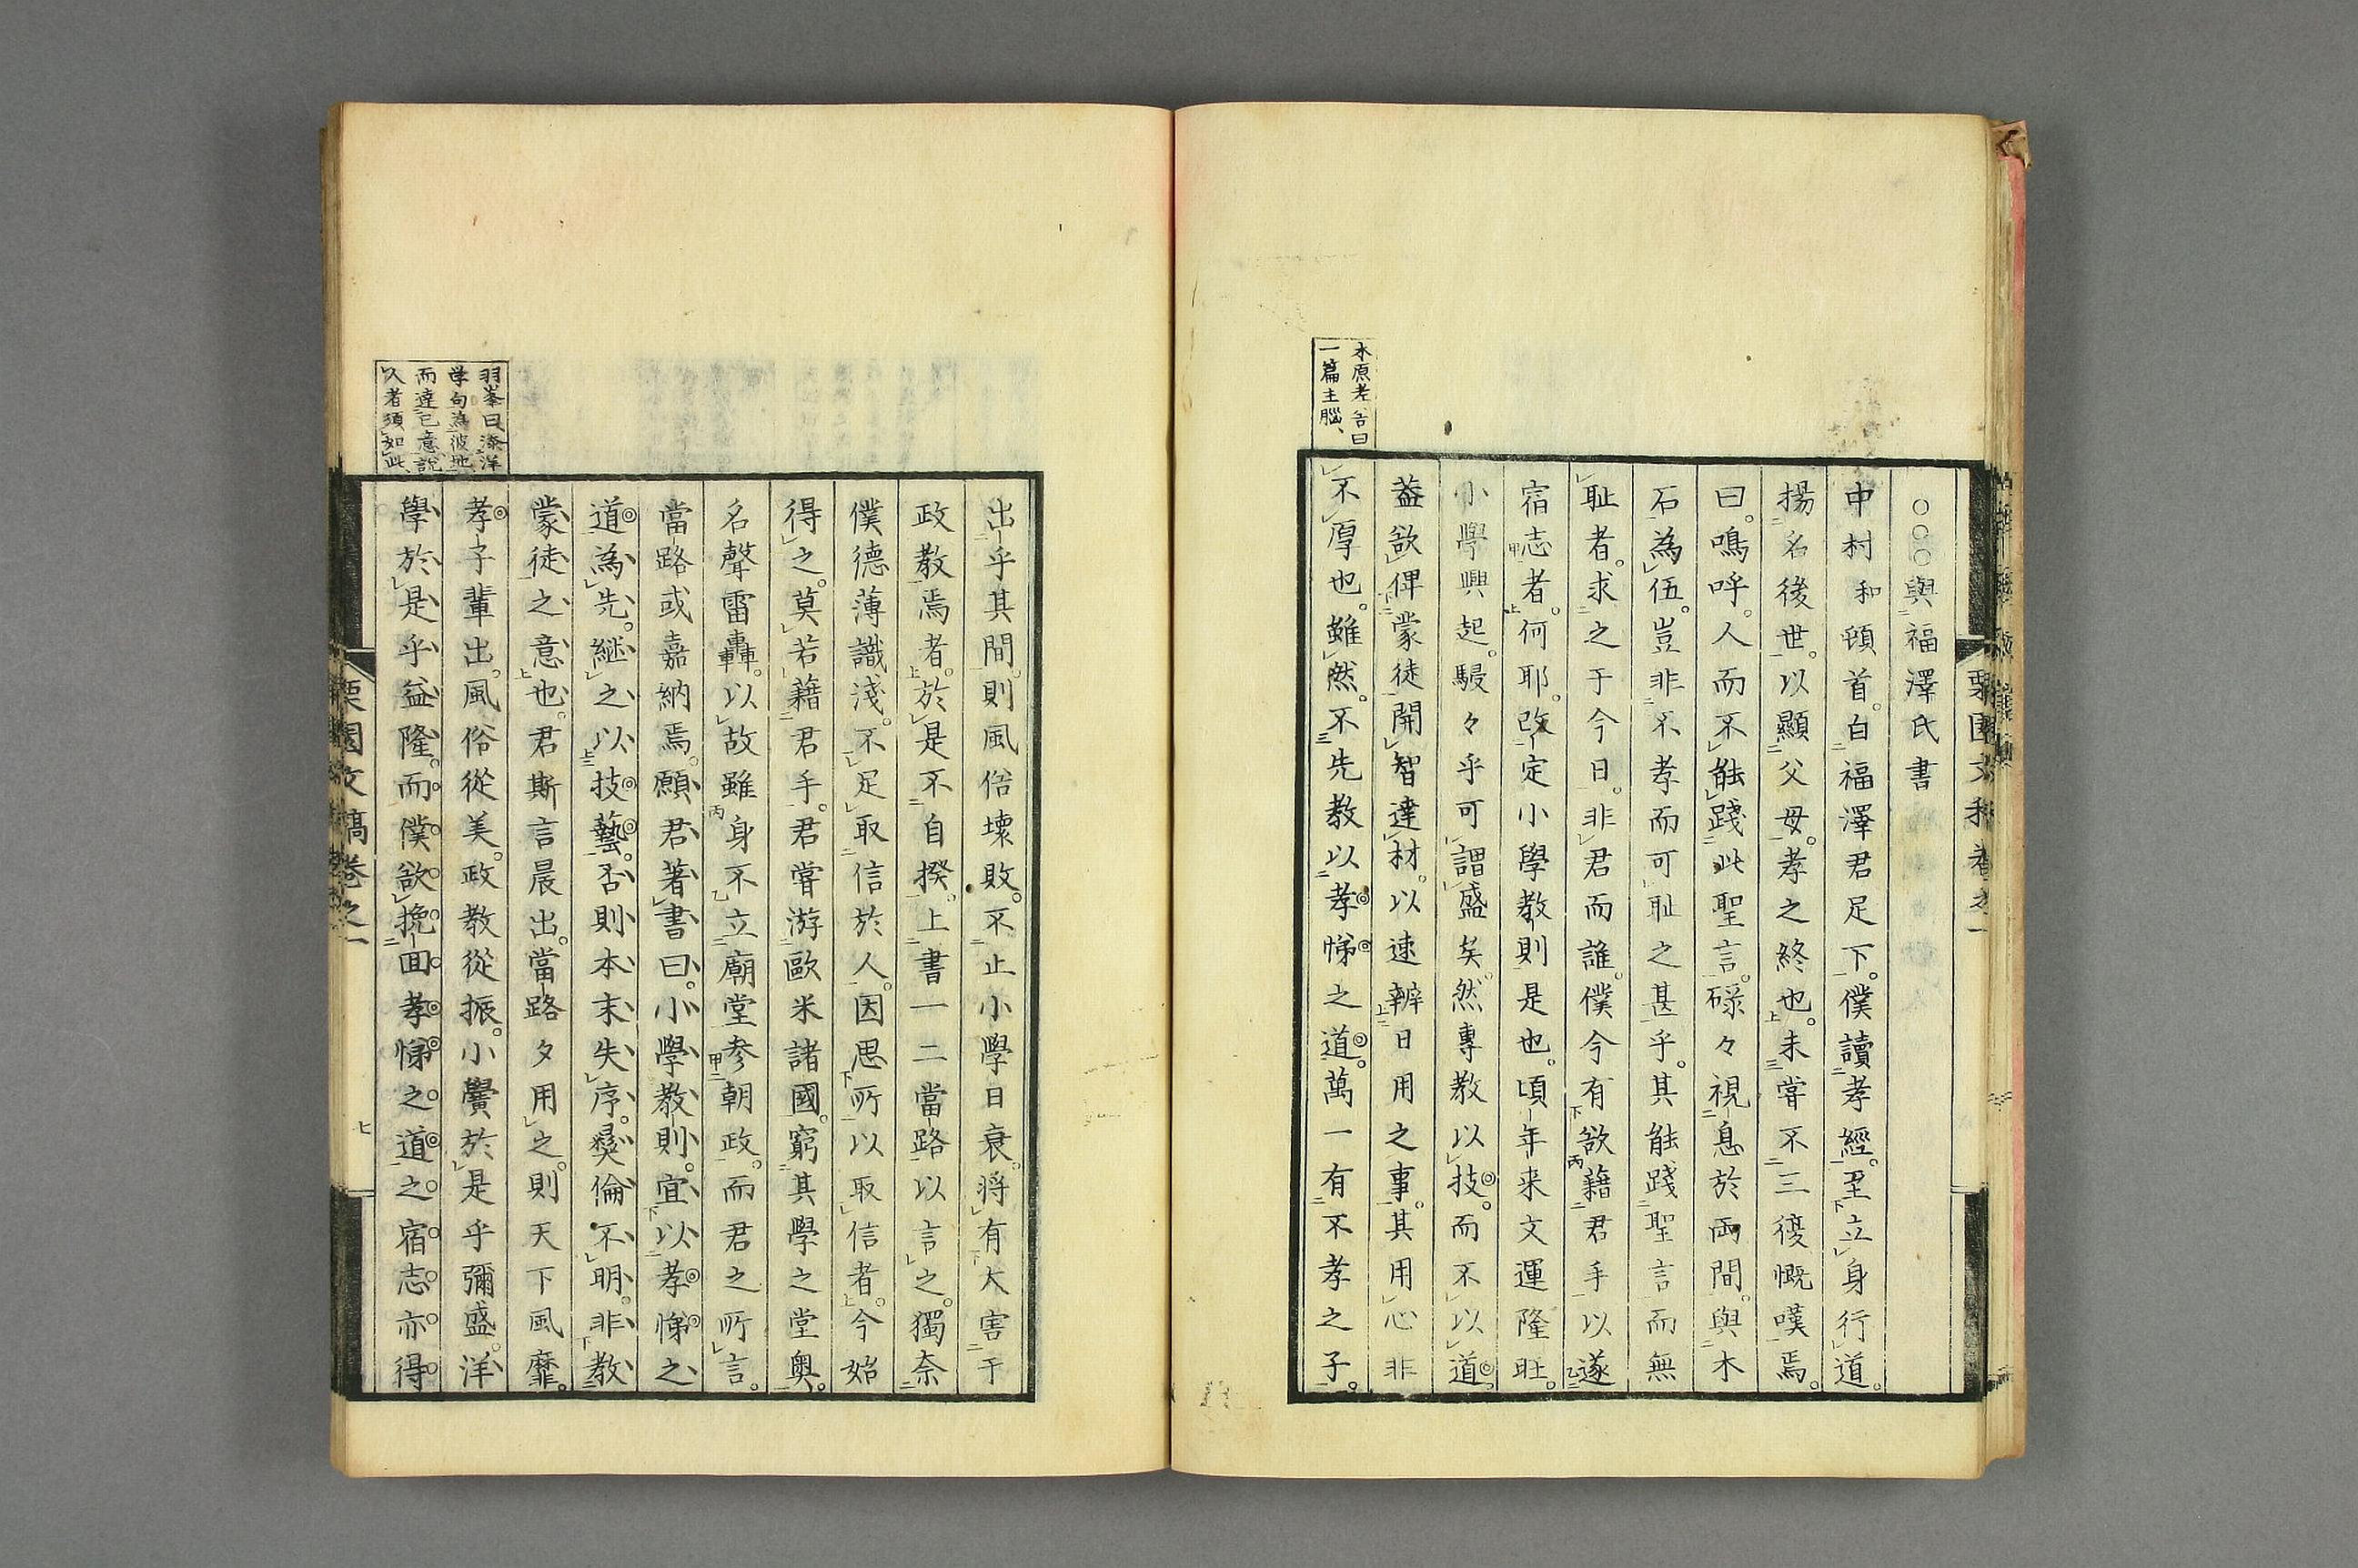 木原老谷曰
一篇主腦、
○○○與福澤氏書
中村和頓首。白福澤君足下。僕讀孝經。至立身行道。
揚名後世。以顯父母。孝之終也。未甞不三復慨嘆焉。
曰。嗚呼。人而不能踐此聖言。碌々視息於兩間。與木
石為伍。豈非不孝而可耻之甚乎。其能踐聖言而無
耻者。求之于今日。非君而誰。僕今有欲藉君手以遂
宿志者。何耶。改定小學教則是也。頃年来文運隆旺。
小學興起。駸々乎可謂盛矣。然專教以技。而不以道。
葢欲俾蒙徒開智達材。以速辨日用之事。其用心非
不厚也。雖然。不先教以孝悌之道。萬一有不孝之子。
栗園文稿卷之一
出乎其間。則風俗壞敗。不止小學日衰。将有大害于
政教焉者。於是不自揆。上書一二當路以言之。獨奈
僕德薄識淺。不足取信於人。因思所以取信者。今始
得之。莫若藉君手。君甞游歐米諸國。窮其學之堂奧。
名聲雷轟。以故雖身不立廟堂參朝政。而君之所言。
當路或嘉納焉。願君著書曰。小學教則。宜以孝悌之
道為先。継之以技藝。否則本末失序。彛倫不明。非教
蒙徒之意也。君斯言晨出。當路夕用之。則天下風靡。
孝子輩出。風俗從美。政教從振。小黌於是乎彌盛。洋
學於是乎益隆。而僕欲挽回孝悌之道之宿志亦得
羽峯曰添洋
学句為彼地
而達已意說
人者須如此、
栗園文稿卷之一
七